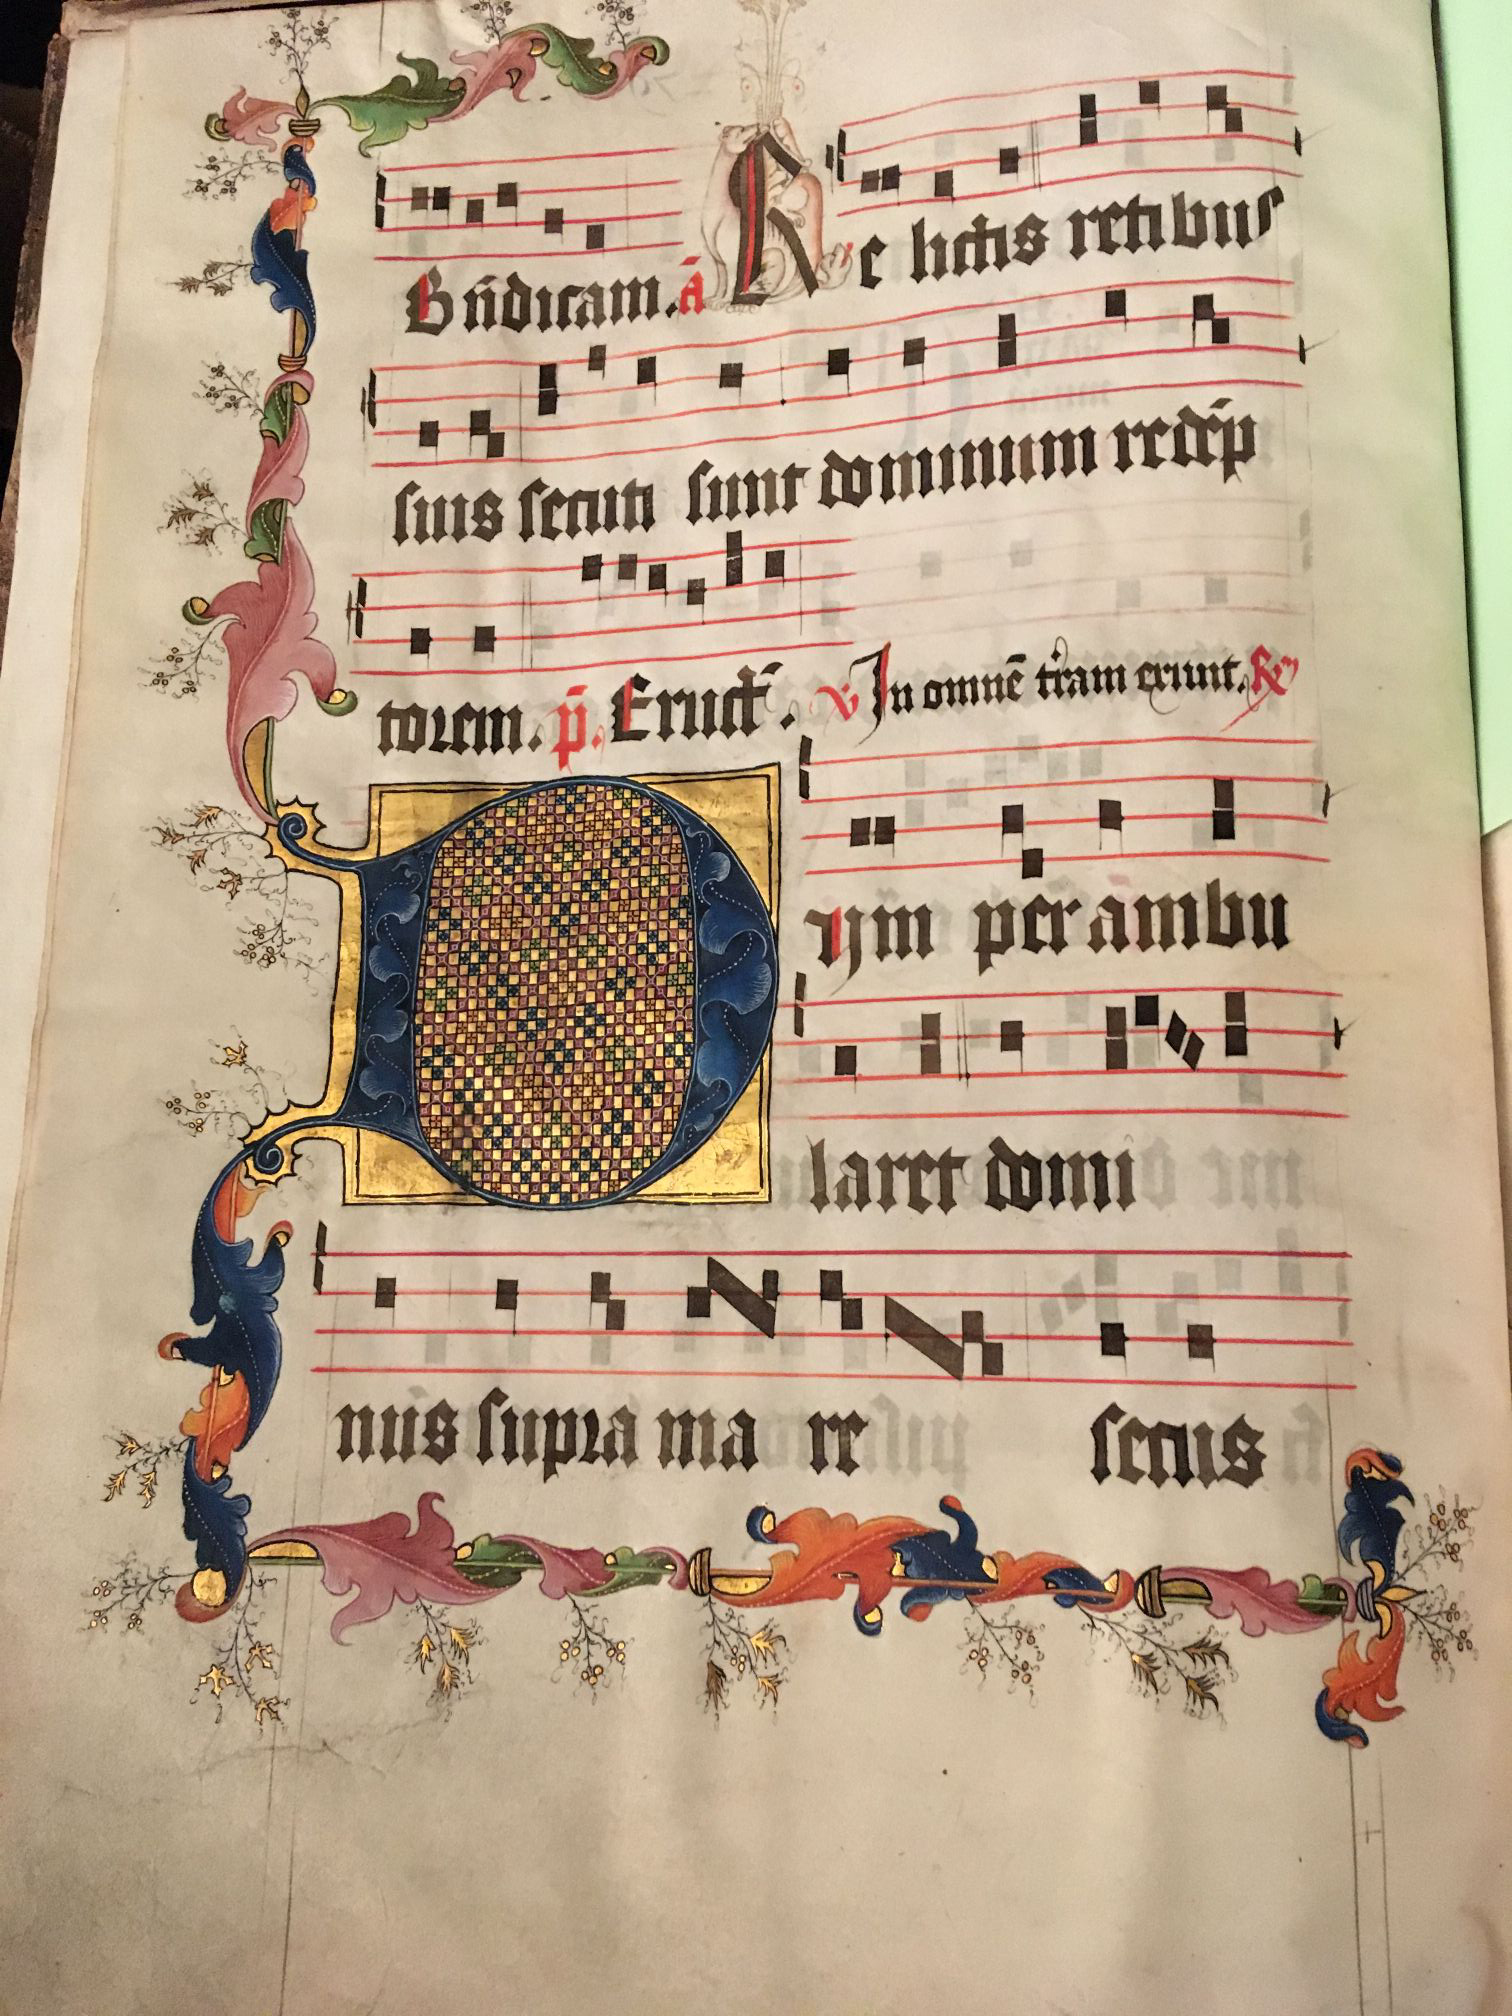 Bn̄dicam. ā Re lictis retibus
suis secuti sunt dominum redēp
torem. p̄. Eruct̄. v̄ In omnē t'ram exiunt. R̷
Dum perambu
laret domi
nus supra ma re secus